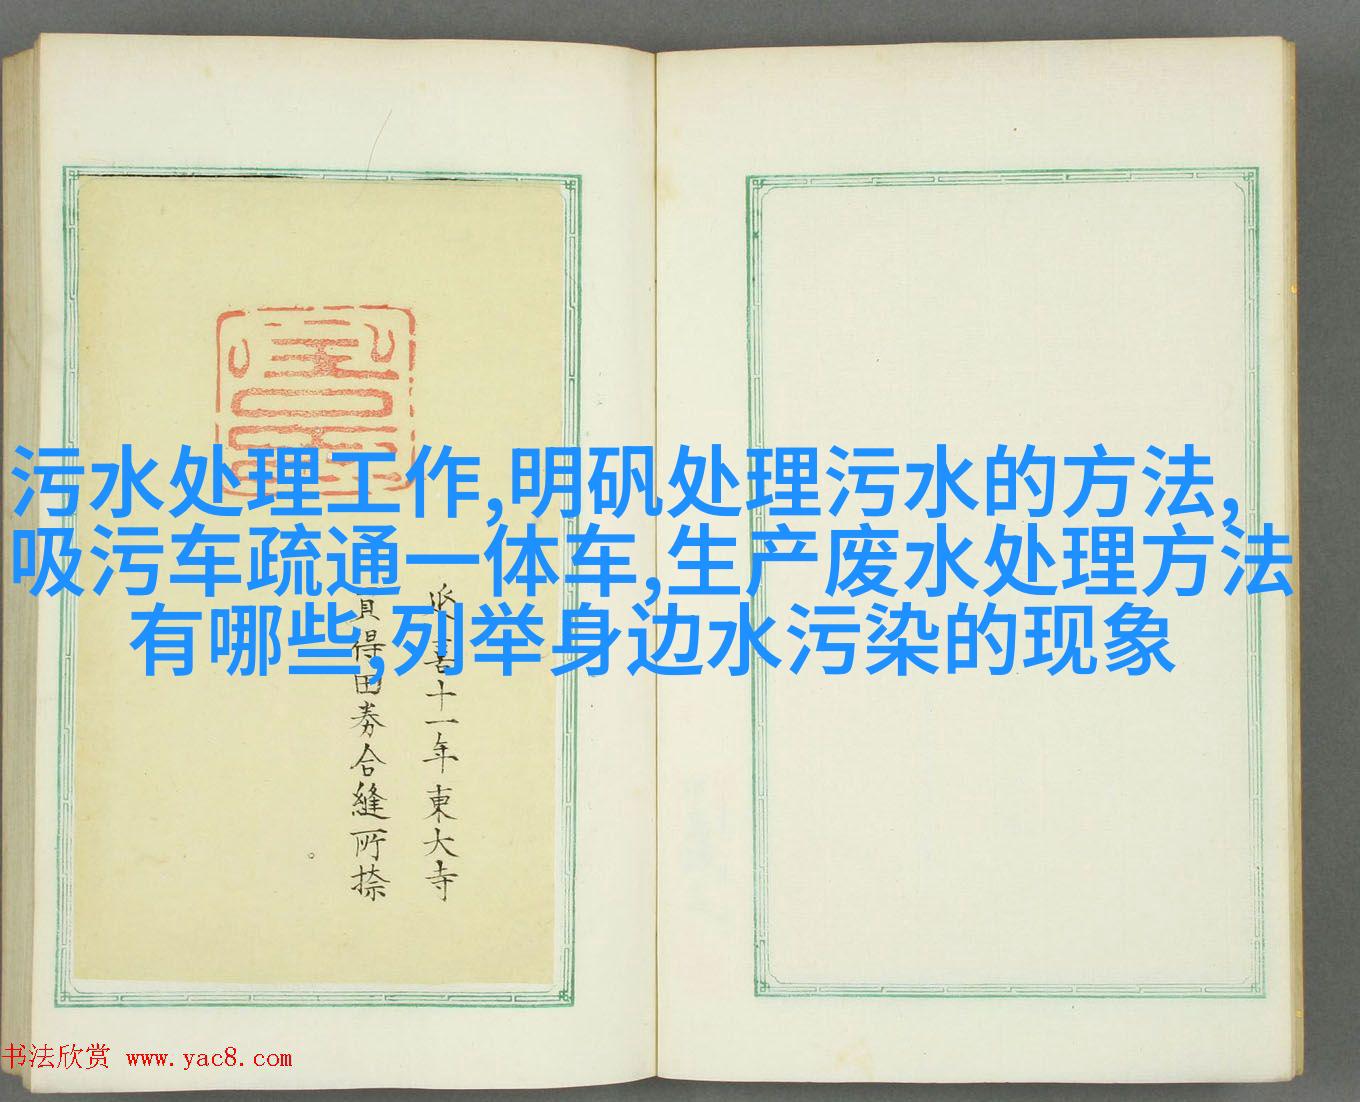 污水处理工作,明矾处理污水的方法,
吸污车疏通一体车,生产废水处理方法
有哪些,列举身边水污染的现象
喜十一年東大寺
得田券合縫所捺
书法欣赏 www.yac8.com